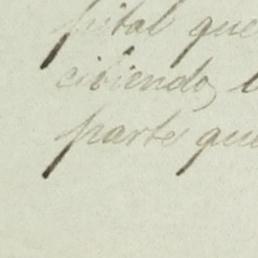 pital que
cibiendo,
parte que